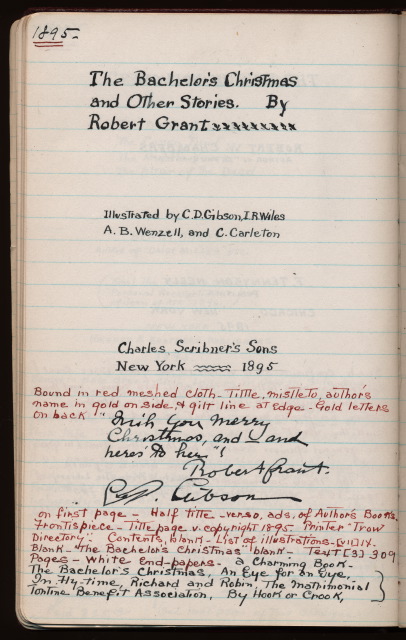 1895.
The Bachelor's Christmas
and Other Stories. By
Robert Grant
Illustrated by C.D.Gibson, I.R.Wiles
A. B. Wenzell, and C. Carleton
Charles Scribner's Sons
New York 1895
Bound in red meshed cloth - Title, mistleto, author's
name in gold on side & gilt line at edge - Gold letters
on back
"Wish you merry
Christmas, and - and
here's to her"!
Robert Grant.
C. D. Gibson
on first page - Half title - verso, ads. of Author's Books.
Frontispiece - Title page v. copyright 1895. Printer Trow
Directory - Contents, blank - List of illustrations - [VII] IX.
Blank - "The Bachelor's Christmas" blank - Text [3] 309
Pages - White End-papers. a Charming Book -
The Bachelor's Christmas, An Eye for an Eye,
In Fly-time, Richard and Robin, The Matrimonial
Tontine Benefit Association, By Hook or Crook,